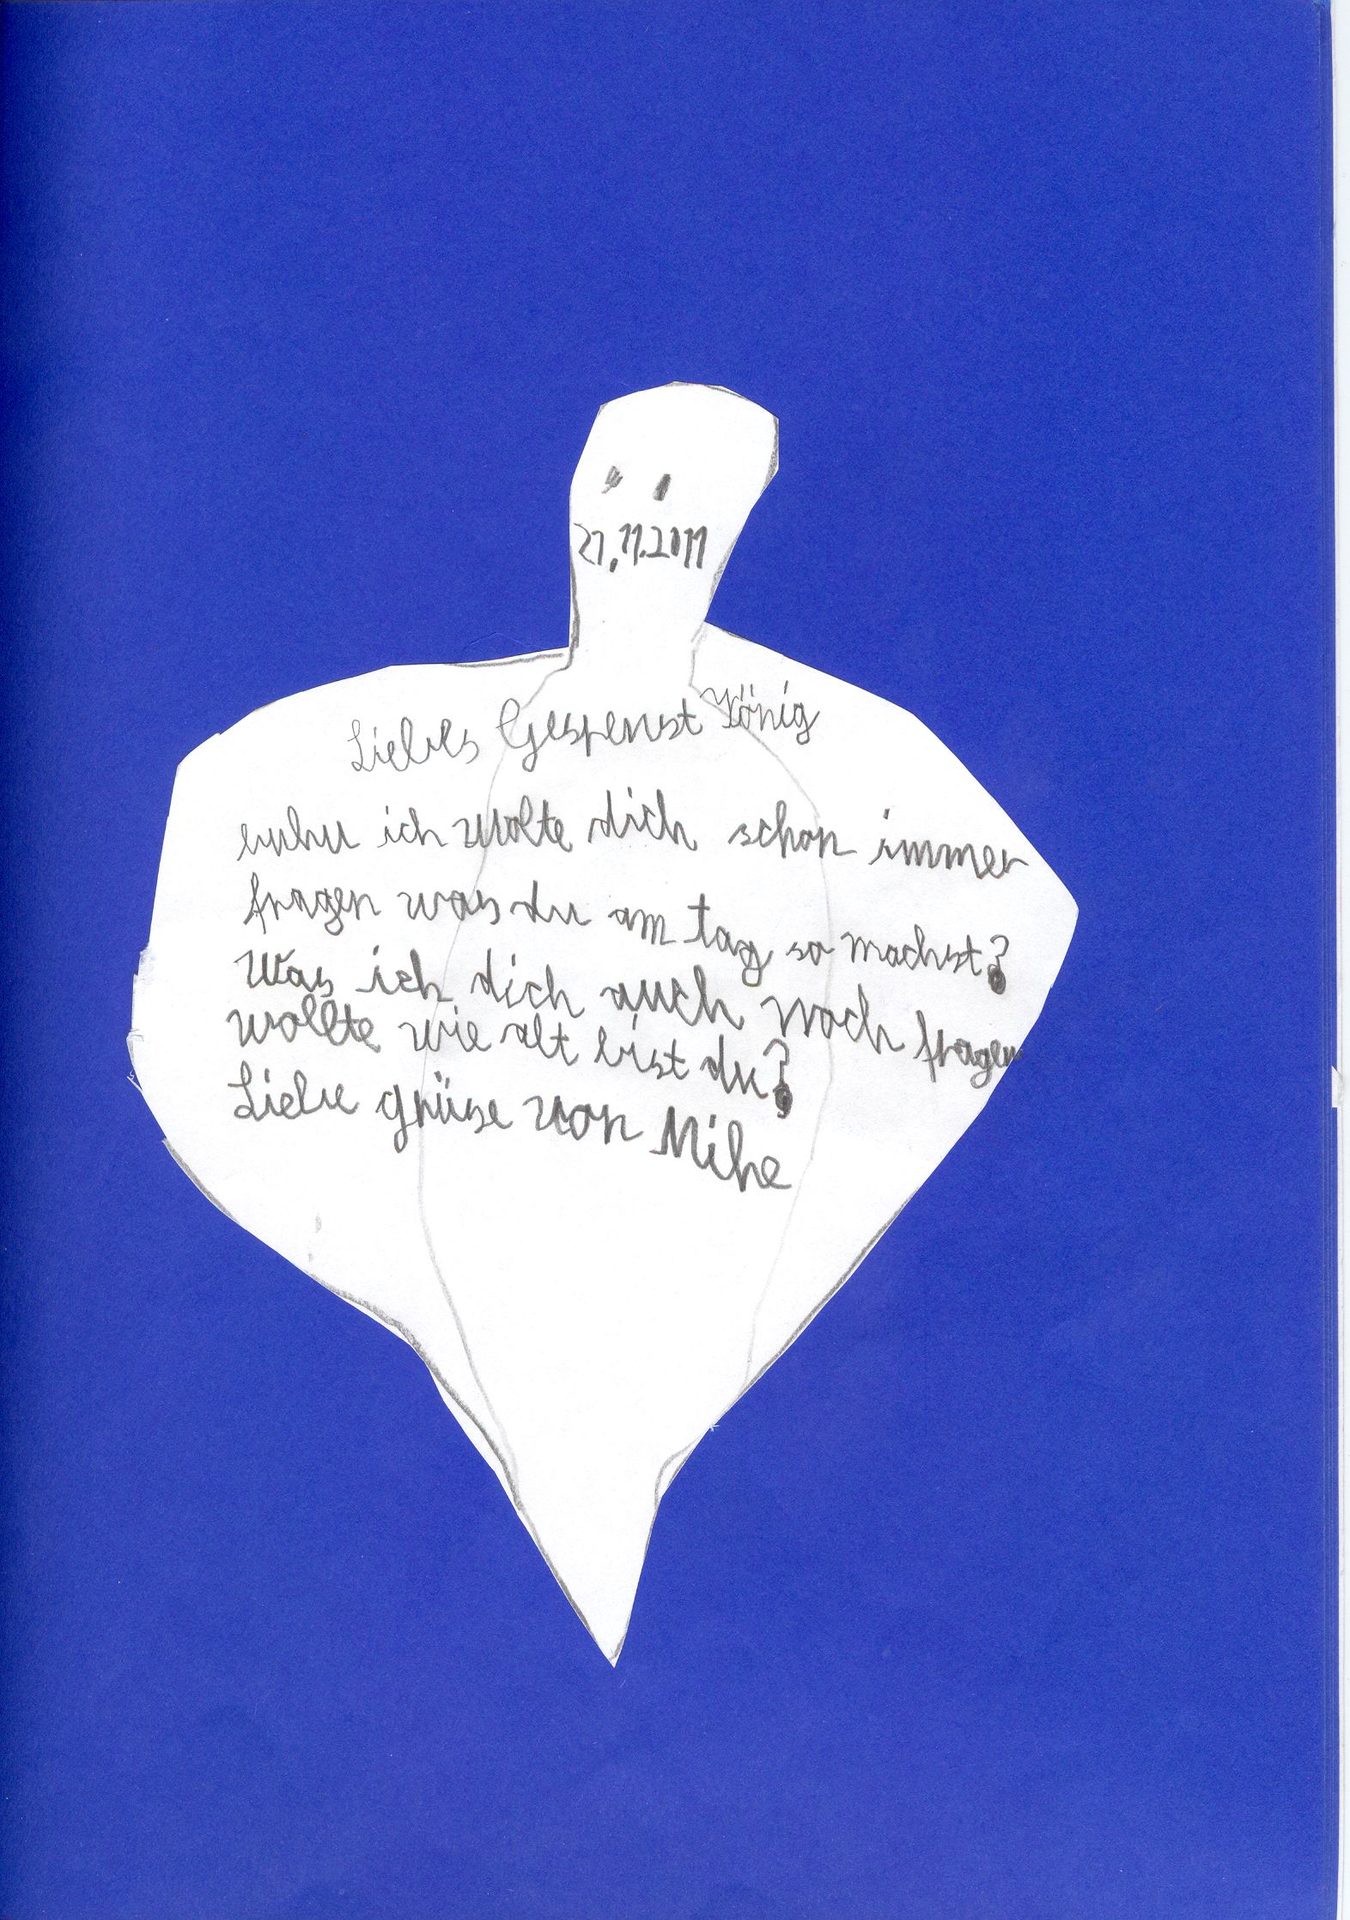 21.11.2011
Liebes Gespenst König
huhu ich wolte dich schon immer
fragen was du am tag so machst?
Was ich dich auch noch fragen
wollte wie alt bist du?
Liebe grüse von